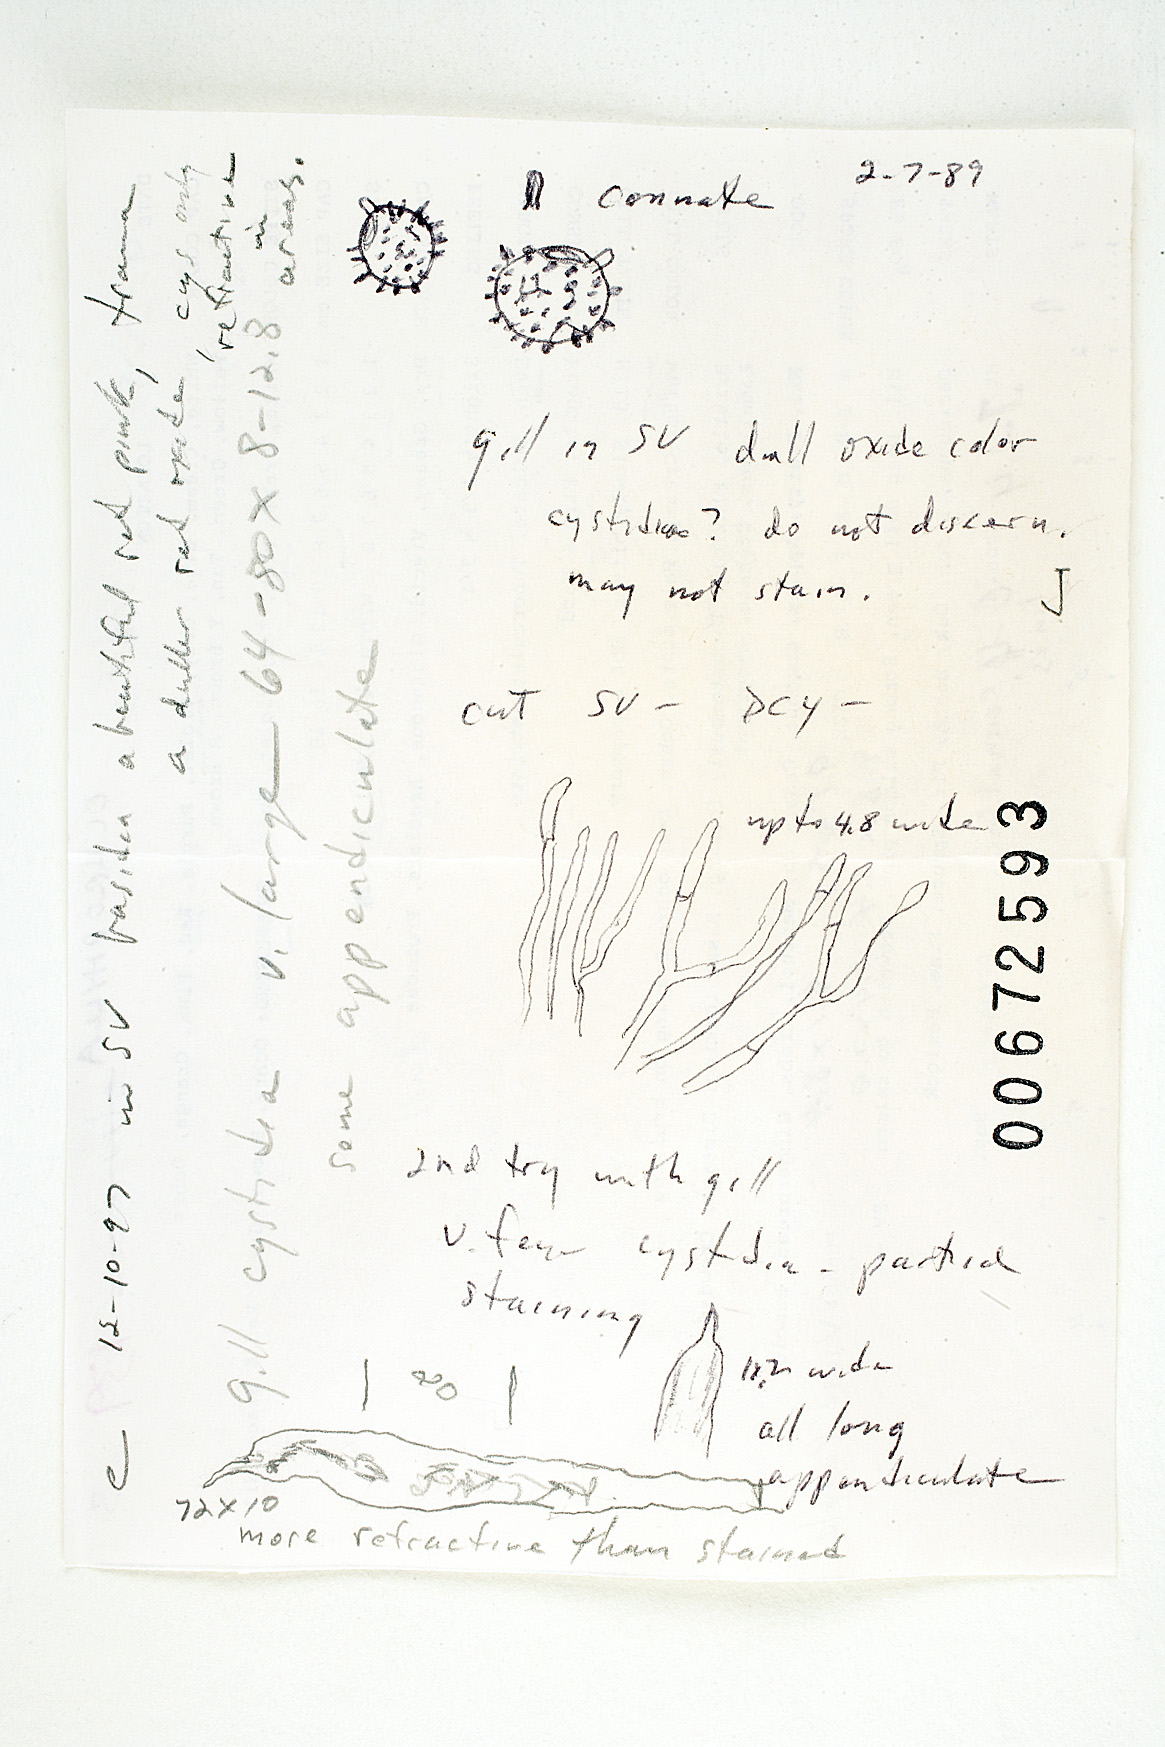 2-7-89
connate
gill in SV dull oxide color
cystidia? do not discern.
may not stain.
J
cut SV - DCY -
up to 4.8 wide
00672593
2nd try with gill
v. few cystidia - partial
staining
wide
all long
appendiculate
72 x 10
more refractive than stained
12-10-97 in SV basidia a beautiful red pink, trama
a duller red oxide, cys only
refractive
in
areas.
gill cystidia v. large - 64-80 x 8-12.8
some appendiculate